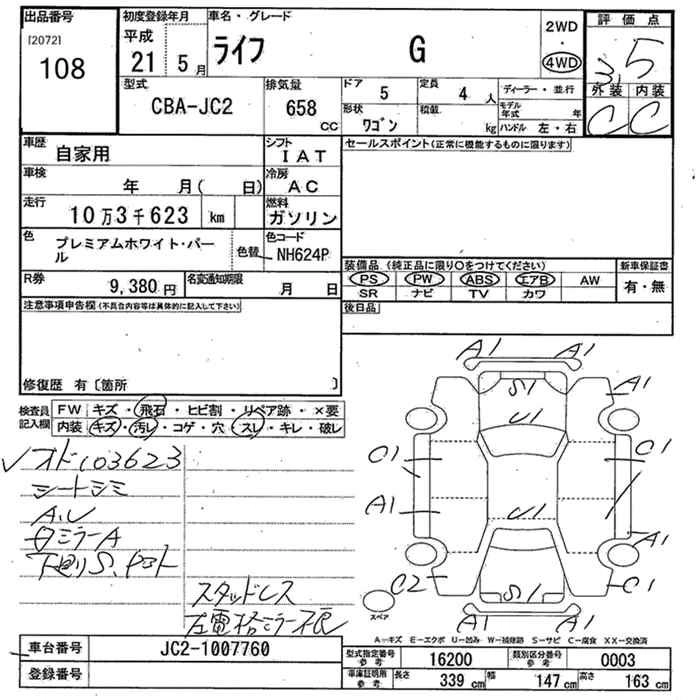 出品番号 初度登録年月 車名・グレード 評価点
[2072] 平成 2WD
108 21 5月 ライフ G ・ 3.5
4WD
型式 排気量 ドア 5 定員 4人 ディーラー・並行 外装 内装
CBA-JC2 658 CC 形状 ワゴン 積載 kg モデル年式 年 C C
ハンドル 左・右
車歴 自家用 シフト IAT セールスポイント(正常に機能するものに限ります)
車検 年 月( 日) 冷房 AC
走行 10万3千623 km 燃料 ガソリン
色 プレミアムホワイト・パール 色替 色コード NH624P
装備品(純正品に限り○をつけてください) 新車保証書
R券 9,380円 名変通知期限 月 日 PS PW ABS エアB AW 有・無
SR ナビ TV カワ
注意事項申告欄(不具合内容等は具体的に記入して下さい) 後日品
修復歴 有〔箇所 〕
検査員記入欄 FW キズ・飛石・ヒビ割・リペア跡・×要
内装 キズ・汚レ・コゲ・穴・スレ・キレ・破レ
A1 A1
S1 A1
U1
C1 C1
A1 U1 A1
C2 S1 C1
A1 A1
✓オド103623
シートシミ
A.U
スタッドレス
左電格ミラー不良
スペア
A−キズ E−エクボ U−凹み W−補修跡 S−サビ C−腐食 XX−交換済
車台番号 JC2-1007760
登録番号
型式指定番号 参考 16200 類別区分番号 参考 0003
車庫証明用 参考 長さ 339 cm 幅 147 cm 高さ 163 cm